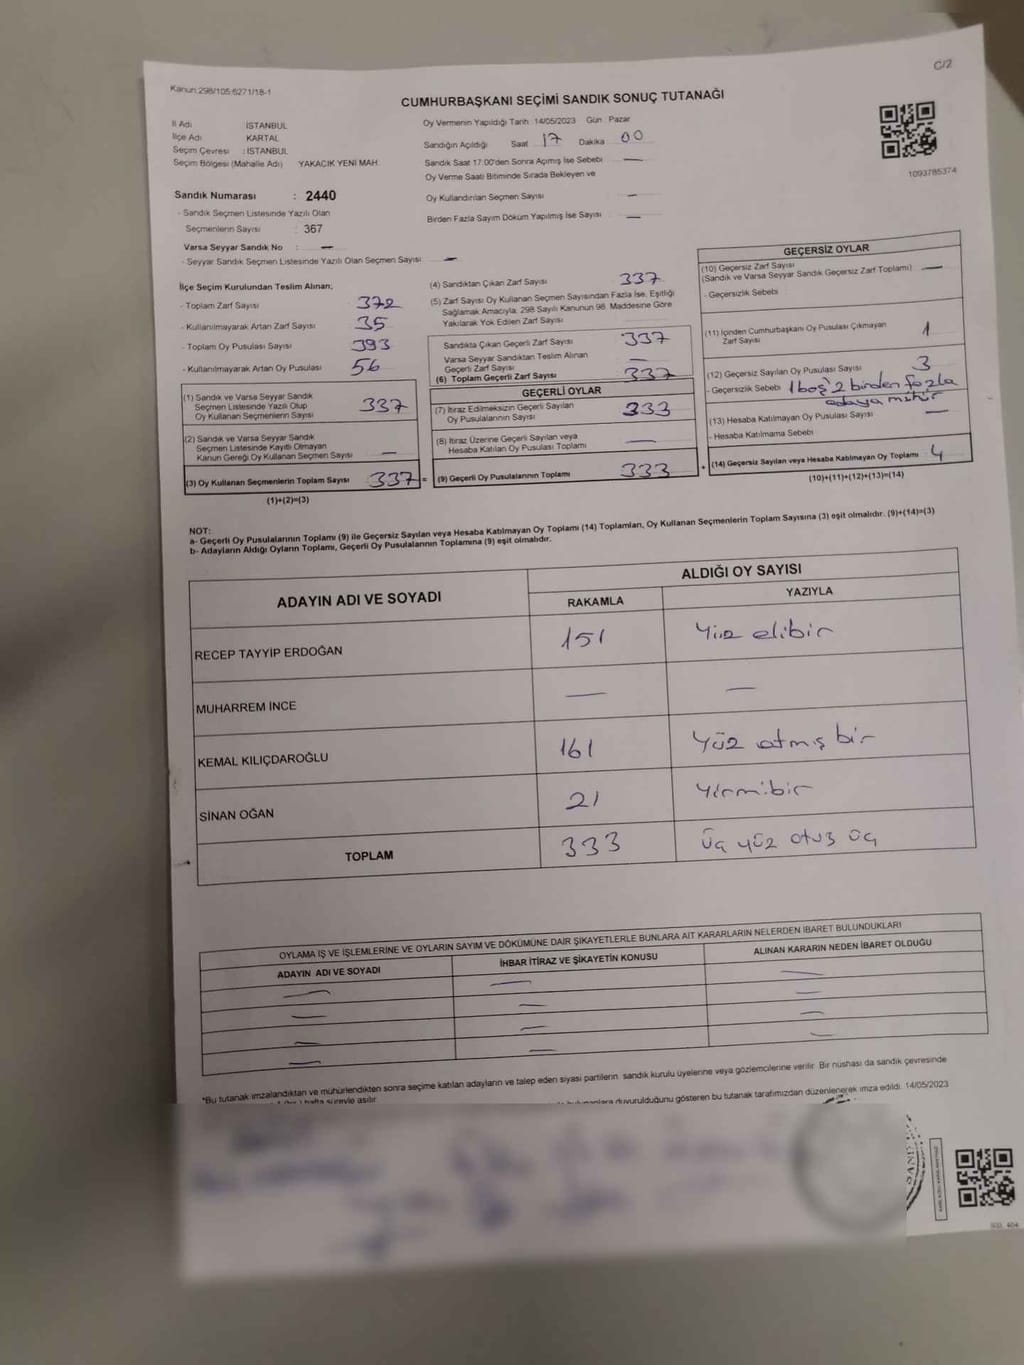 C/2
Kanun:298/105-6271/18-1
CUMHURBAŞKANI SEÇİMİ SANDIK SONUÇ TUTANAĞI
İl Adı İSTANBUL
İlçe Adı KARTAL
Seçim Çevresi : İSTANBUL
Seçim Bölgesi (Mahalle Adı) YAKACIK YENİ MAH.
Sandık Numarası : 2440
- Sandık Seçmen Listesinde Yazılı Olan
Seçmenlerin Sayısı : 367
Varsa Seyyar Sandık No : —
- Seyyar Sandık Seçmen Listesinde Yazılı Olan Seçmen Sayısı —
Oy Vermenin Yapıldığı Tarih 14/05/2023 Gün Pazar
Sandığın Açıldığı Saat 17 Dakika 00
Sandık Saat 17:00'den Sonra Açımış İse Sebebi —
Oy Verme Saati Bitiminde Sırada Bekleyen ve
Oy Kullandırılan Seçmen Sayısı —
Birden Fazla Sayım Döküm Yapılmış İse Sayısı —
1093785374
İlçe Seçim Kurulundan Teslim Alınan;
- Toplam Zarf Sayısı 372
- Kullanılmayarak Artan Zarf Sayısı 35
- Toplam Oy Pusulası Sayısı 393
- Kullanılmayarak Artan Oy Pusulası 56
(1) Sandık ve Varsa Seyyar Sandık
Seçmen Listesinde Yazılı Olup
Oy Kullanan Seçmenlerin Sayısı 337
(2) Sandık ve Varsa Seyyar Sandık
Seçmen Listesinde Kayıtlı Olmayan
Kanun Gereği Oy Kullanan Seçmen Sayısı —
(3) Oy Kullanan Seçmenlerin Toplam Sayısı 337 =
(1)+(2)=(3)
(4) Sandıktan Çıkan Zarf Sayısı 337
(5) Zarf Sayısı Oy Kullanan Seçmen Sayısından Fazla İse, Eşitliği
Sağlamak Amacıyla, 298 Sayılı Kanunun 98. Maddesine Göre
Yakılarak Yok Edilen Zarf Sayısı
Sandıkta Çıkan Geçerli Zarf Sayısı 337
Varsa Seyyar Sandıktan Teslim Alınan
Geçerli Zarf Sayısı —
(6) Toplam Geçerli Zarf Sayısı 337
GEÇERLİ OYLAR
(7) İtiraz Edilmeksizin Geçerli Sayılan
Oy Pusulalarının Sayısı 333
(8) İtiraz Üzerine Geçerli Sayılan veya
Hesaba Katılan Oy Pusulası Toplamı —
(9) Geçerli Oy Pusulalarının Toplamı 333 +
GEÇERSİZ OYLAR
(10) Geçersiz Zarf Sayısı
(Sandık ve Varsa Seyyar Sandık Geçersiz Zarf Toplamı) —
- Geçersizlik Sebebi
(11) İçinden Cumhurbaşkanı Oy Pusulası Çıkmayan
Zarf Sayısı 1
(12) Geçersiz Sayılan Oy Pusulası Sayısı 3
- Geçersizlik Sebebi 1 boş 2 birden fazla
adaya mühür
(13) Hesaba Katılmayan Oy Pusulası Sayısı —
- Hesaba Katılmama Sebebi
(14) Geçersiz Sayılan veya Hesaba Katılmayan Oy Toplamı 4
(10)+(11)+(12)+(13)=(14)
NOT:
a- Geçerli Oy Pusulalarının Toplamı (9) ile Geçersiz Sayılan veya Hesaba Katılmayan Oy Toplamı (14) Toplamları, Oy Kullanan Seçmenlerin Toplam Sayısına (3) eşit olmalıdır. (9)+(14)=(3)
b- Adayların Aldığı Oyların Toplamı, Geçerli Oy Pusulalarının Toplamına (9) eşit olmalıdır.
ADAYIN ADI VE SOYADI ALDIĞI OY SAYISI
RAKAMLA YAZIYLA
RECEP TAYYİP ERDOĞAN 151 Yüz elibir
MUHARREM İNCE — —
KEMAL KILIÇDAROĞLU 161 Yüz atmış bir
SİNAN OĞAN 21 Yirmibir
TOPLAM 333 Üç yüz otuz üç
OYLAMA İŞ VE İŞLEMLERİNE VE OYLARIN SAYIM VE DÖKÜMÜNE DAİR ŞİKAYETLERLE BUNLARA AİT KARARLARIN NELERDEN İBARET BULUNDUKLARI
ADAYIN ADI VE SOYADI İHBAR İTİRAZ VE ŞİKAYETİN KONUSU ALINAN KARARIN NEDEN İBARET OLDUĞU
— — —
— — —
— — —
— — —
*Bu tutanak imzalandıktan ve mühürlendikten sonra seçime katılan adayların ve talep eden siyasi partilerin sandık kurulu üyelerine veya gözlemcilerine verilir. Bir nüshası da sandık çevresinde
hafta süreyle asılır. duyurulduğunu gösteren bu tutanak tarafımızdan düzenlenerek imza edildi. 14/05/2023